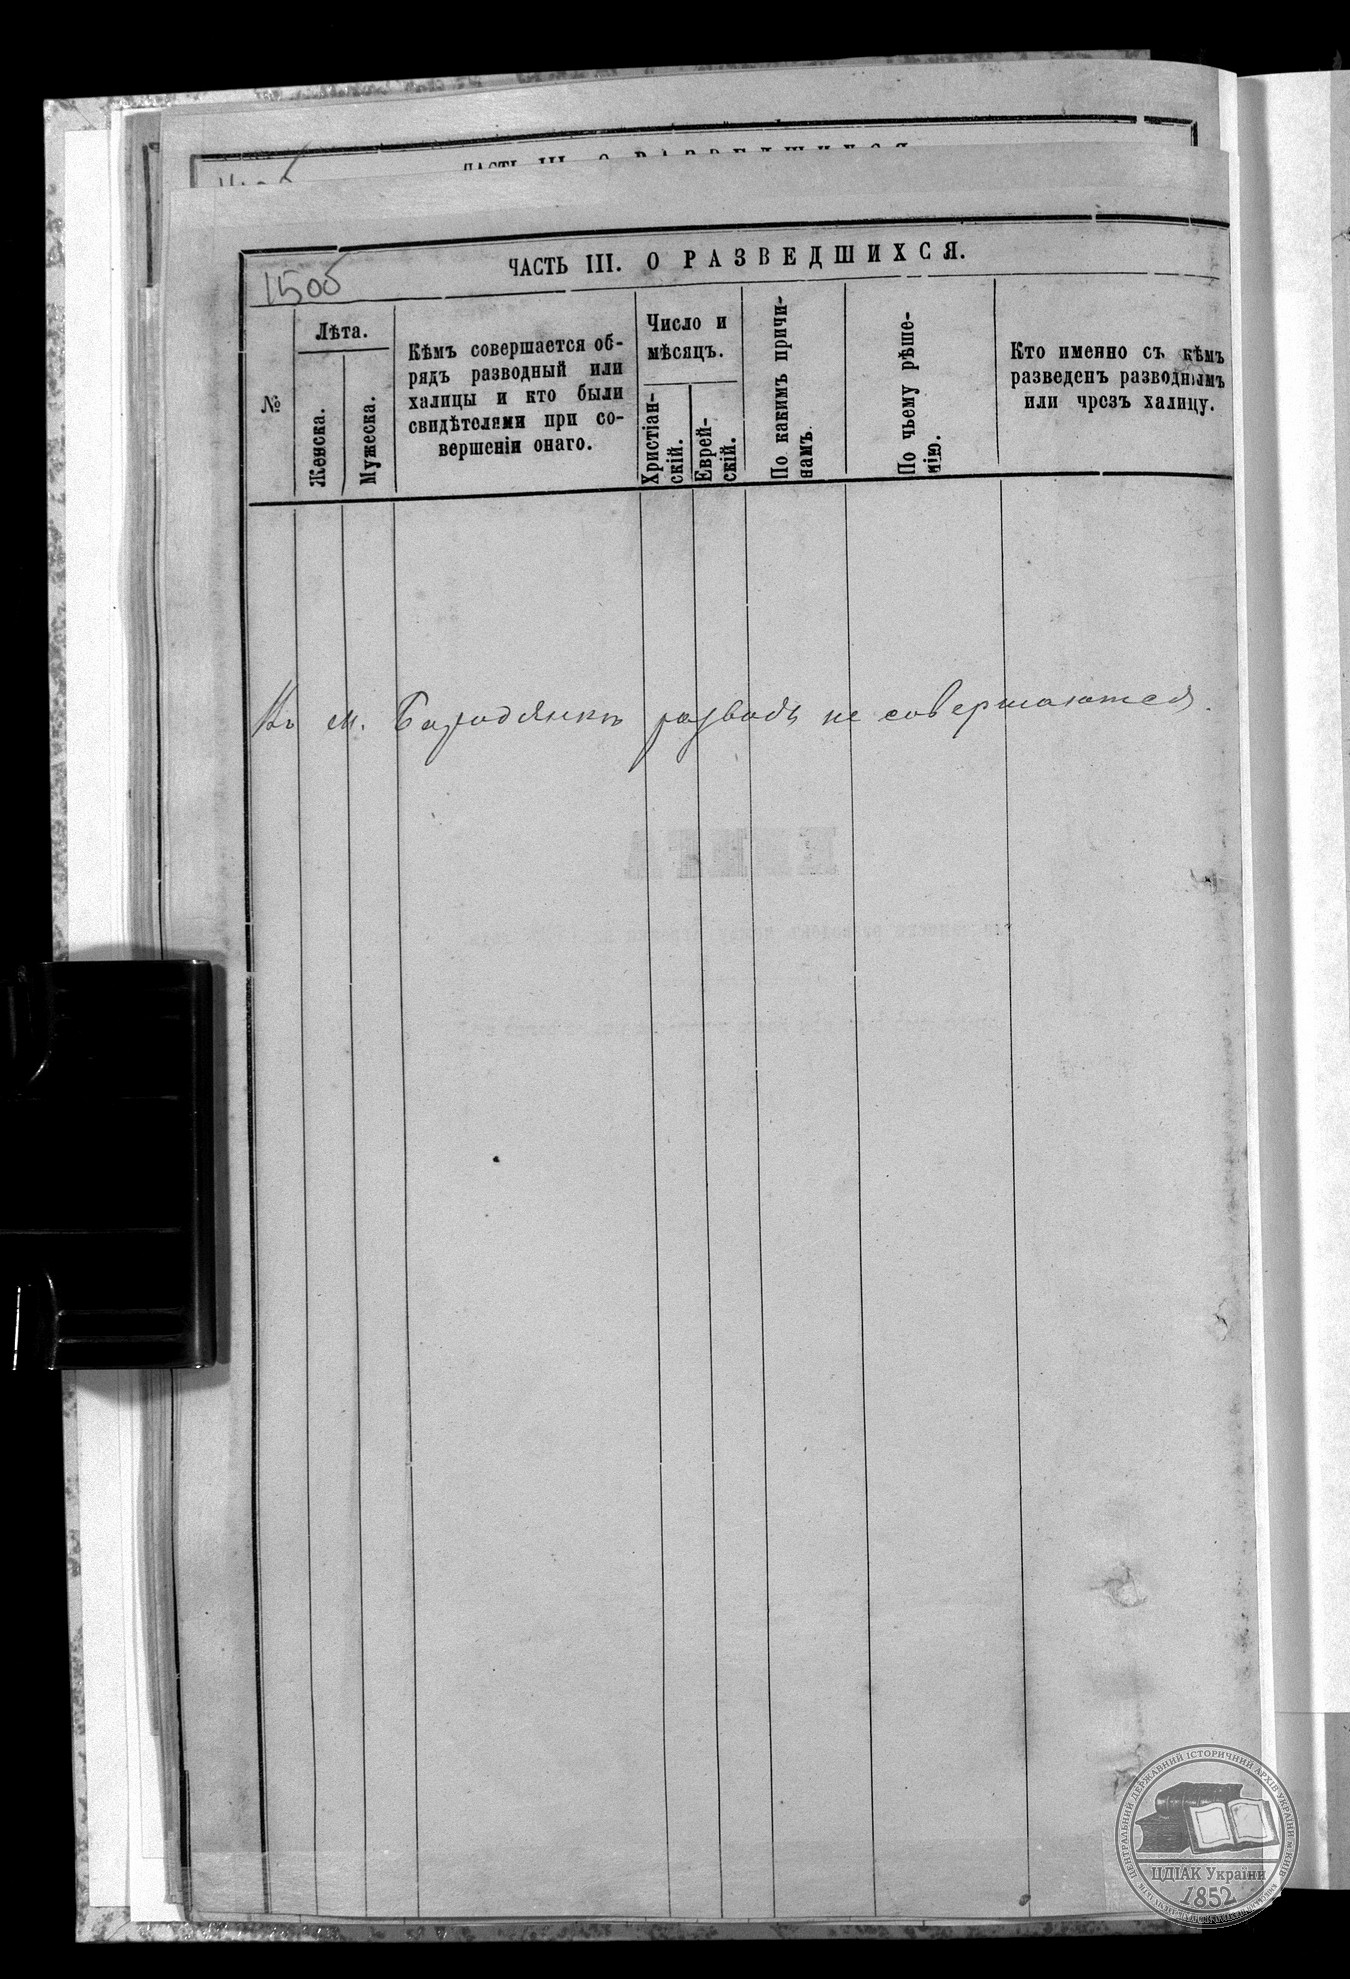 ЧАСТЬ III. О РАЗВЕДШИХСЯ.
15об
№
Лѣта.
Женска.
Мужеска.
Кѣмъ совершается об-
рядъ разводный или
халицы и кто были
свидѣтелями при со-
вершеніи онаго.
Число и
мѣсяцъ.
Христіан-
скій.
Еврей-
скій.
По какимъ причи-
намъ.
По чьему рѣше-
нію.
Кто именно съ кѣмъ
разведенъ разводнымъ
или чрезъ халицу.
Въ м. Бородянкѣ разводъ не совершаются.
ЦЕНТРАЛЬНИЙ ДЕРЖАВНИЙ ІСТОРИЧНИЙ АРХІВ УКРАЇНИ м.КИЇВ
ЦДІАК України
1852